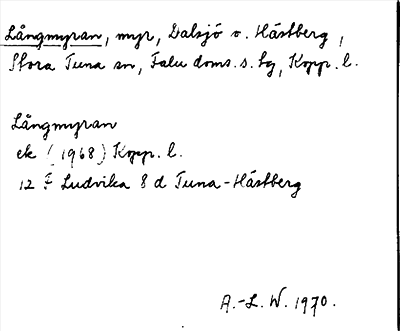 Långmyran, myr, Dalsjö o. Hästberg,
Stora Tuna sn, Falu doms. s. tg, Kopp. l.
Långmyran
ek (1968) Kopp. l.
12 F Ludvika 8 d Tuna-Hästberg
A.-L. W. 1970.